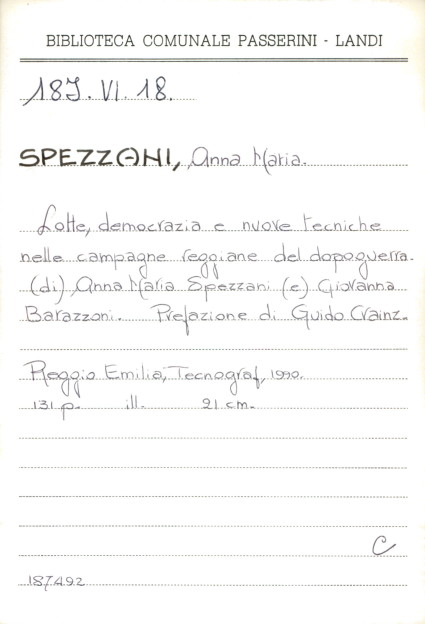 BIBLIOTECA COMUNALE PASSERINI - LANDI
18J. VI. 18.
SPEZZANI, Anna Maria.
Lotte, democrazia e nuove tecniche
nelle campagne reggiane del dopoguerra.
(di) Anna Maria Spezzani (e) Giovanna
Barazzoni. Prefazione di Guido Crainz.
Reggio Emilia, Tecnograf, 1990.
131 p. ill. 21 cm.
C
187492